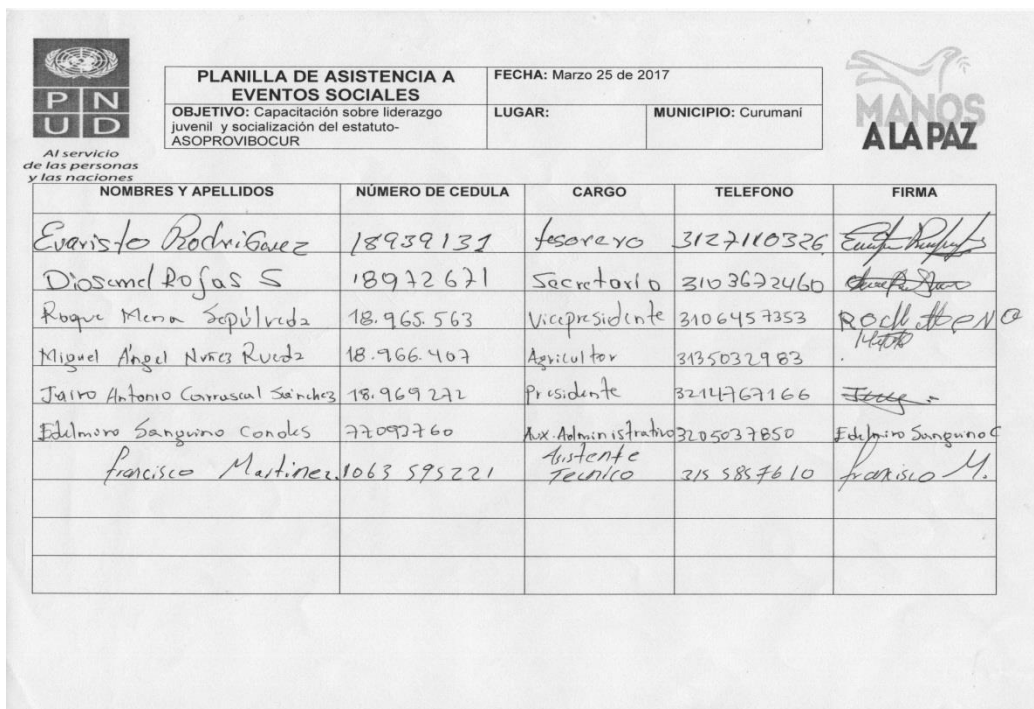 PNUD
Al servicio
de las personas
y las naciones
PLANILLA DE ASISTENCIA A
EVENTOS SOCIALES
FECHA: Marzo 25 de 2017
OBJETIVO: Capacitación sobre liderazgo
juvenil y socialización del estatuto-
ASOPROVIBOCUR
LUGAR:
MUNICIPIO: Curumaní
MANOS
A LA PAZ
NOMBRES Y APELLIDOS NÚMERO DE CEDULA CARGO TELEFONO FIRMA
Evaristo RodriGuez 18939131 tesorero 3127110326
Diosemel Rojas S 18972671 Secretario 3103672460
Roque Mena Sepúlveda 18.965.563 Vicepresidente 3106457353
Miguel Ángel Nuñez Rueda 18.966.407 Agricultor 3135032983
Jairo Antonio Carrascal Sánchez 18.969272 Presidente 3214767166
Edelmiro Sanguino Condes 77092760 Aux. Administrativo 3205037850 Edelmiro Sanguino C
Francisco Martinez. 1063 595221 Asistente Tecnico 315 5857610 francisco M.